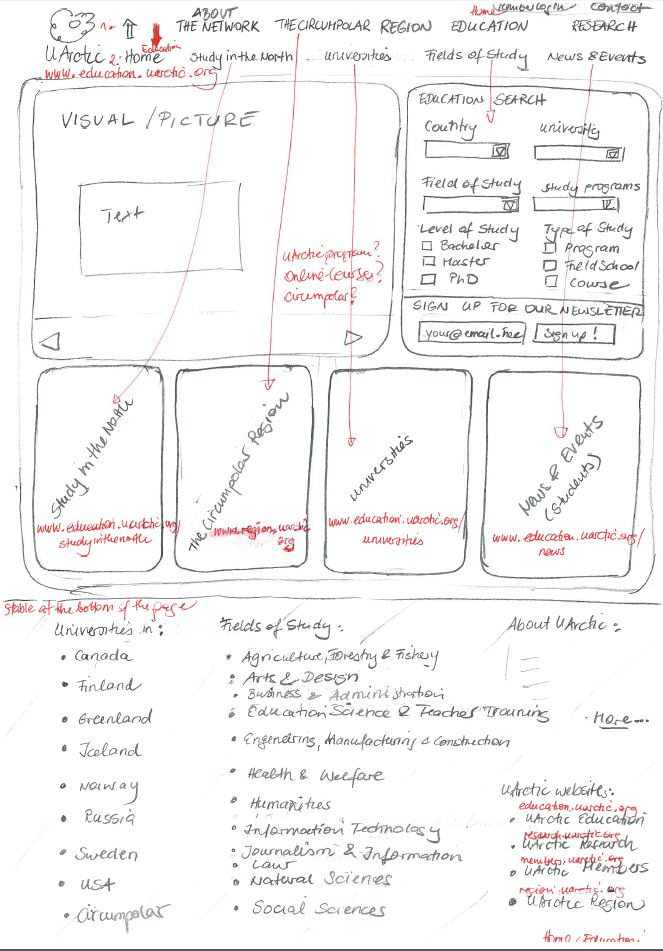 Home member login contact
ABOUT
THE NETWORK THE CIRCUMPOLAR REGION EDUCATION RESEARCH
UArctic 2. Home Education Study in the North universities Fields of Study News & Events
www.education.uarctic.org
VISUAL / PICTURE
Text
UArctic program?
Online-Courses?
circumpolar?
EDUCATION SEARCH
Country university
Field of Study Study programs
Level of Study Type of Study
Bachelor Program
Master Field School
PhD Course
SIGN UP FOR OUR NEWSLETTER
your@email.here Sign up!
Study in the North
www.education.uarctic.org/
studyinthenorth
The Circumpolar Region
www.region.uarctic
org
universities
www.education.uarctic.org/
universities
News & Events
(Students)
www.education.uarctic.org/
news
Stable at the bottom of the page
Universities in:
• Canada
• Finland
• Greenland
• Iceland
• Norway
• Russia
• Sweden
• USA
• Circumpolar
Fields of Study:
• Agriculture, Forestry & Fishery
• Arts & Design
• Business & Administration
• Education Science & Teacher Training
• Engineering, Manufacturing & Construction
• Health & Welfare
• Humanities
• Information Technology
• Journalism & Information
• Law
• Natural Sciences
• Social Sciences
About UArctic:
• More...
UArctic websites:
education.uarctic.org
• UArctic Education
research.uarctic.org
• UArctic Research
members.uarctic.org
• UArctic Members
region.uarctic.org
• UArctic Region
Home / Education